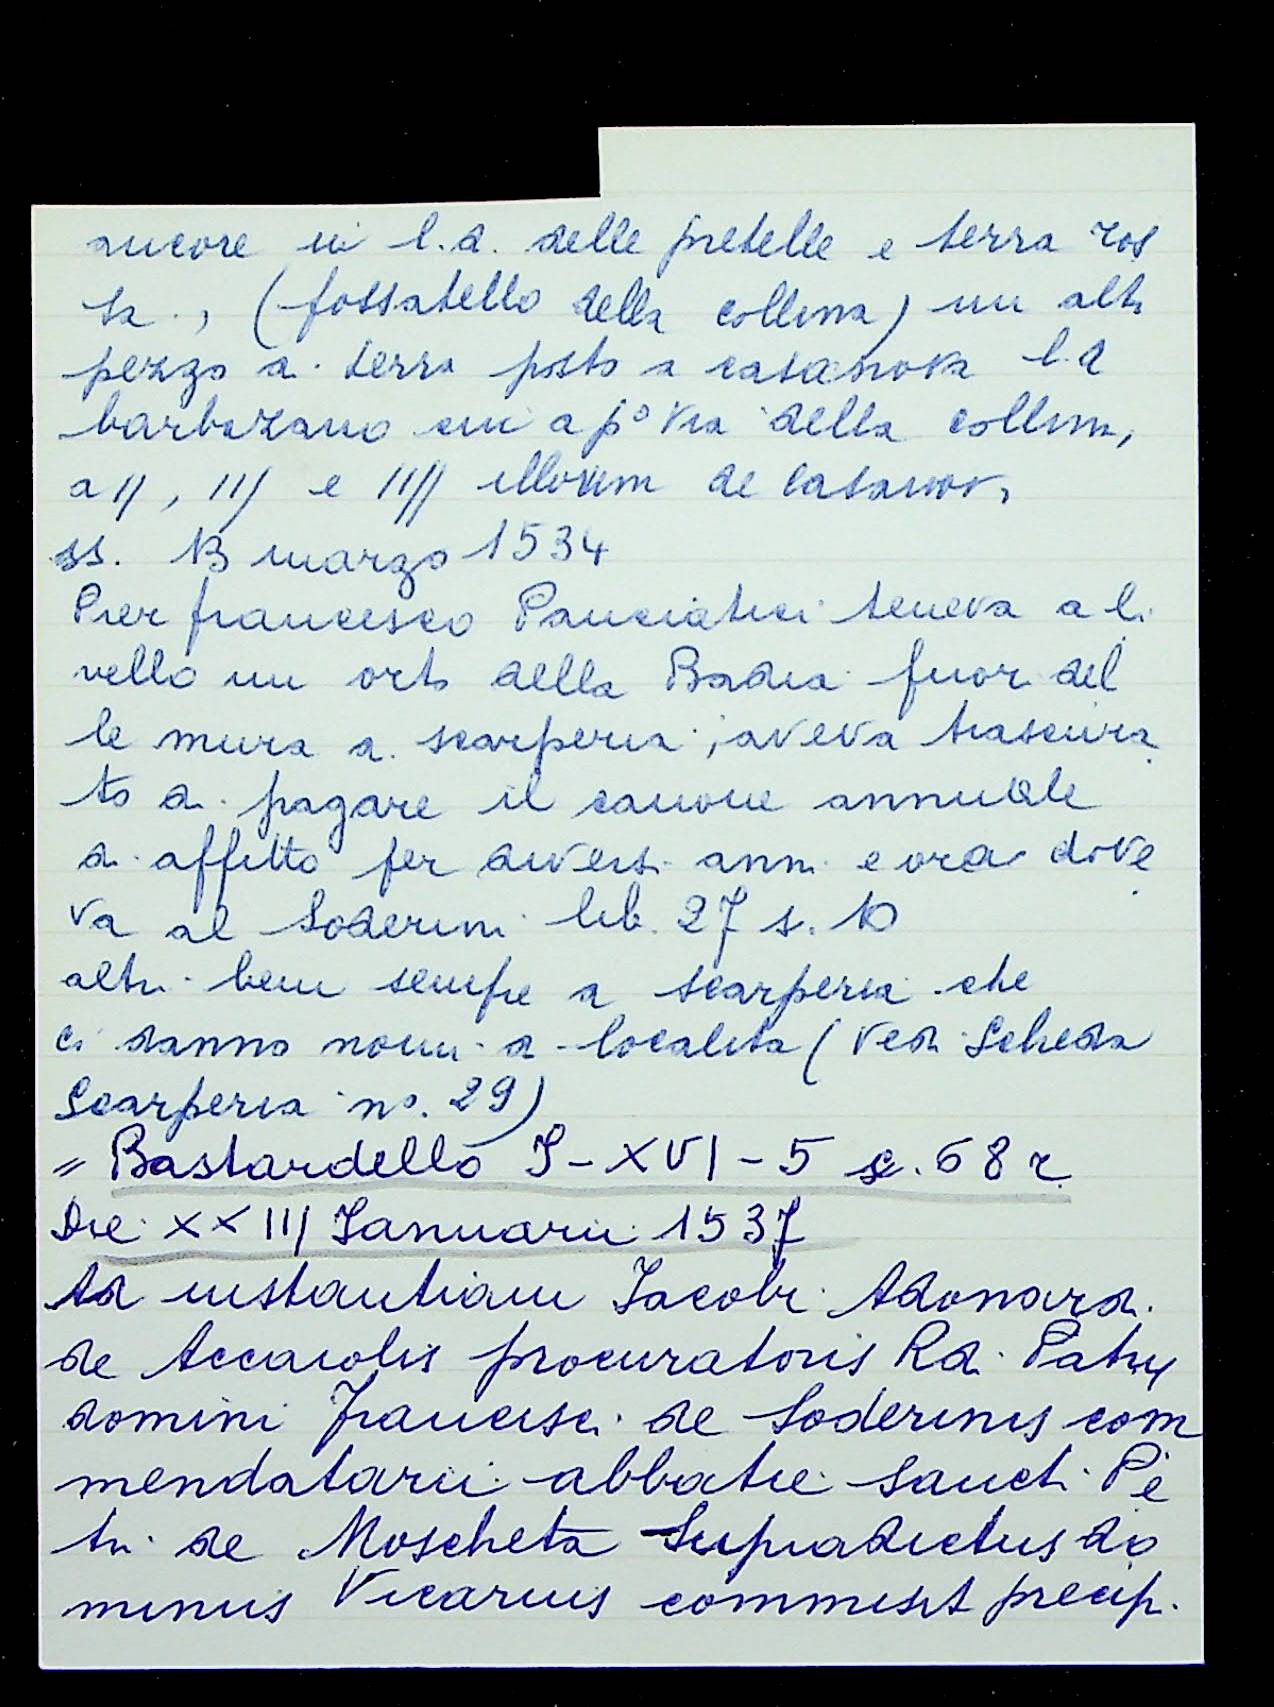 ancora in l.d. delle pretelle e terra ros
sa., (fossatello della collina) un altr
pezzo di terra posto a casanova l.d
barbazano cui a p° via della collina,
a II, III e IIII illorum de Casanova,
ss. 13 marzo 1534
Pier francesco Panciatici teneva a li
vello un orto della Badia fuor del
le mura di scarperia; aveva trascura
to di pagare il canone annuale
di affitto per diversi anni e ora dove
va al Soderini lib. 27 s. 10
altri beni sempre a scarperia che
ci danno nomi di località (vedi Scheda
Scarperia no. 29)
= Bastardello I-XVI-5 c. 68 r
Die XXIII Ianuarii 1537
Ad instantiam Iacobi Adonardi
de Acciaiolis procuratoris Rdi Patris
domini Francisci de Soderinis com
mendatarii abbatie sancti Pe
tri de Moscheta Supradictus do
minus Vicarius commisit precip.